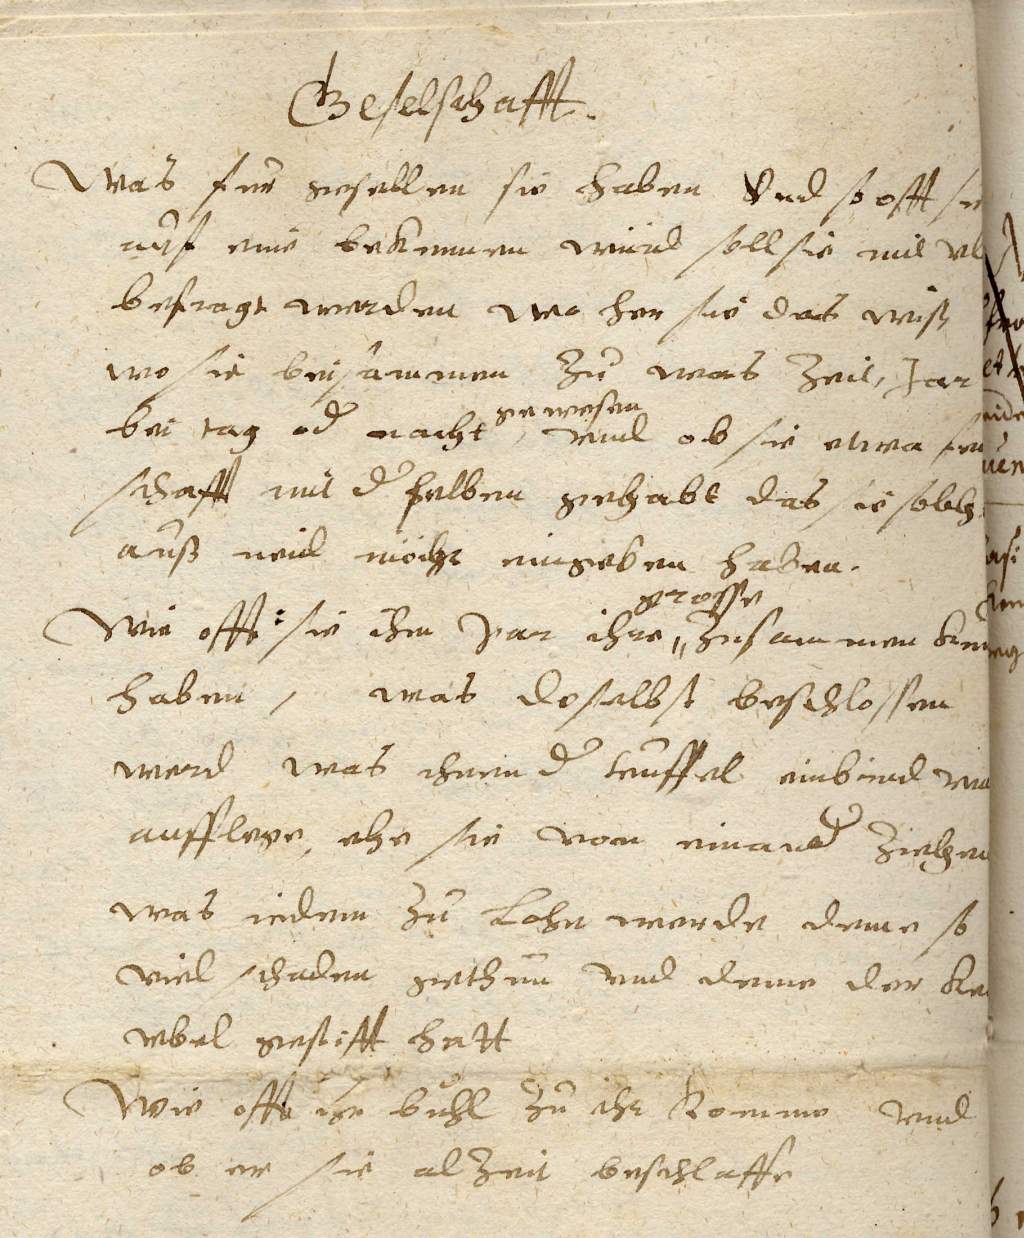 Geselschafft.
Was fur gesellen sie haben Vnd so offt sie
auf eine bekennen wird soll sie mit vl
befragt werden wo her sie das wiß
wo sie beisammen Zu was Zeit, Jar
bei tag od nacht gewesen, vnd ob sie etwa fein
schafft mit d selben gehabt das sie solch
auß neid möcht eingeben haben.
Wie offt sie ihm Jar ihre grosse Zusammen kun
haben, was doselbst beschlossen
werd was ihnen d teuffel einbind vnd
aufflege, ehe sie von einand Ziehen
was iedem Zu Lohn werde deme so
viel schaden gethun vnd deme der kei
vbel gestifft hatt
Wie offt ihr buhl Zu ihr Komme vnd
ob er sie alZeit beschlaffe